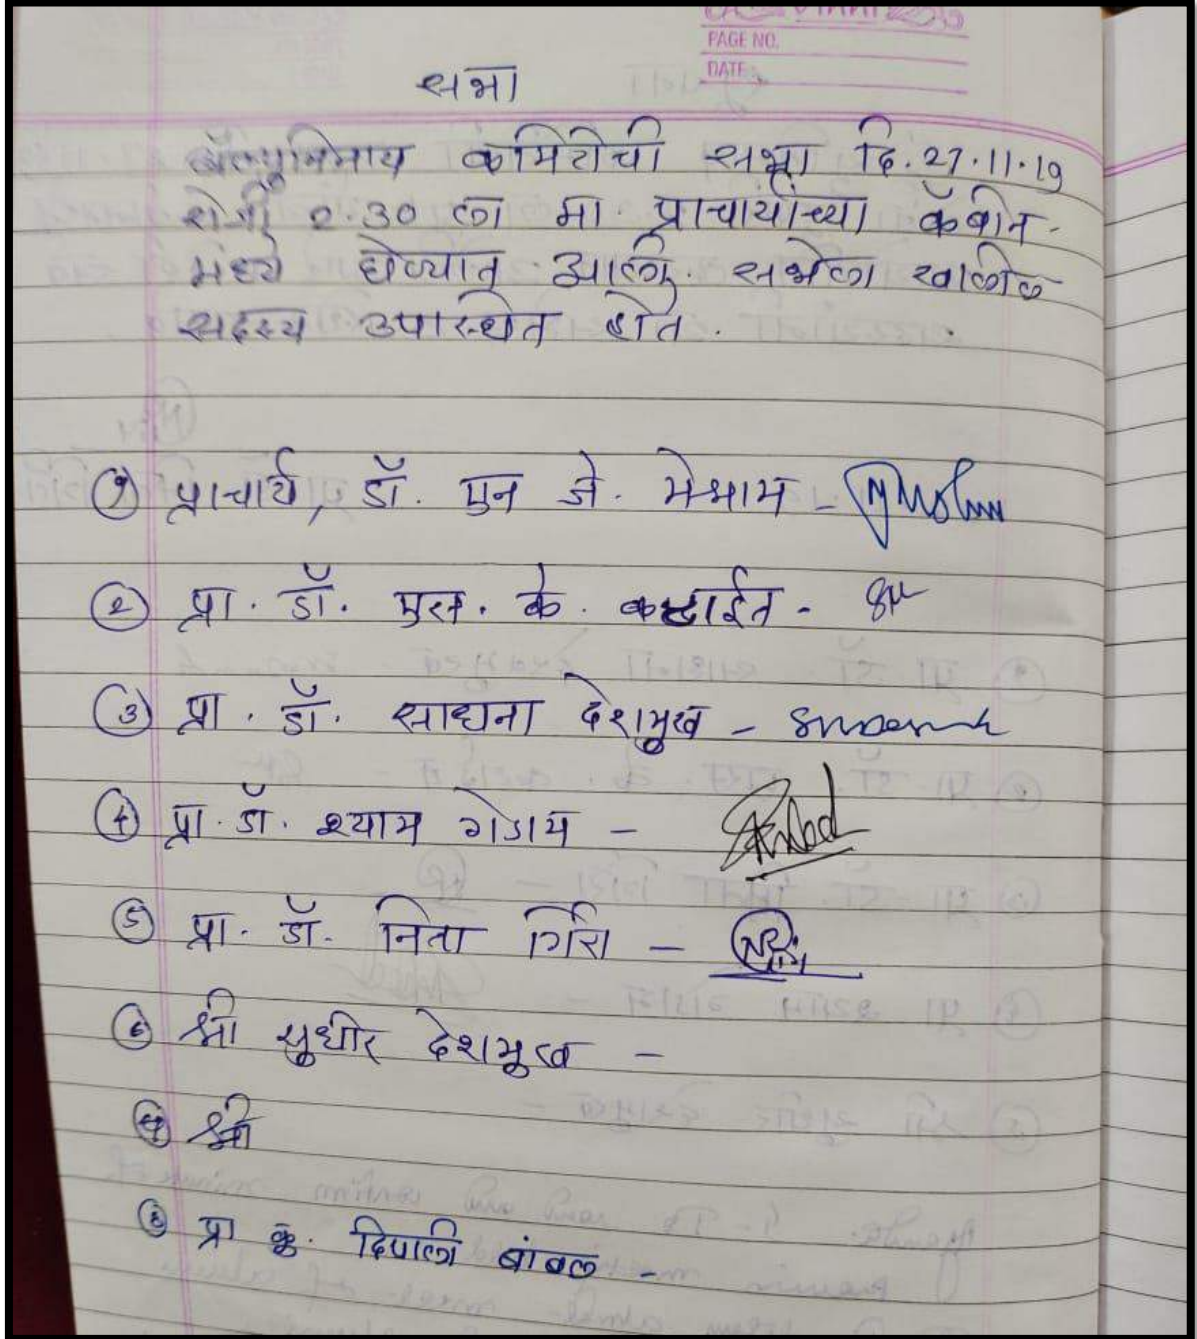 PAGE NO.
DATE
सभा
कमिटीची सभा दि. 27.11.19
रोजी 2.30 ला मा. प्राचार्यांच्या कॅबीन-
मध्ये घेण्यात आली. सभेला खालील
सदस्य उपास्थित होते.
① प्राचार्य, डॉ. एन जे. मेश्राम -
② प्रा. डॉ. एस. के. -
③ प्रा. डॉ. साधना देशमुख -
④ प्रा. डॉ. श्याम गेडाम -
⑤ प्रा. डॉ. निता गिरी -
⑥ श्री सुधीर देशमुख -
श्री
⑧ प्रा कु. दिपाली बांबल -